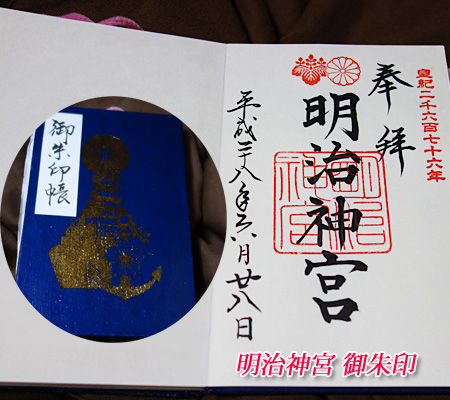 皇紀二千六百七十六年
奉拝
明治神宮
明治
神宮
平成二十八年六月廿八日
御朱印帳
明治神宮 御朱印